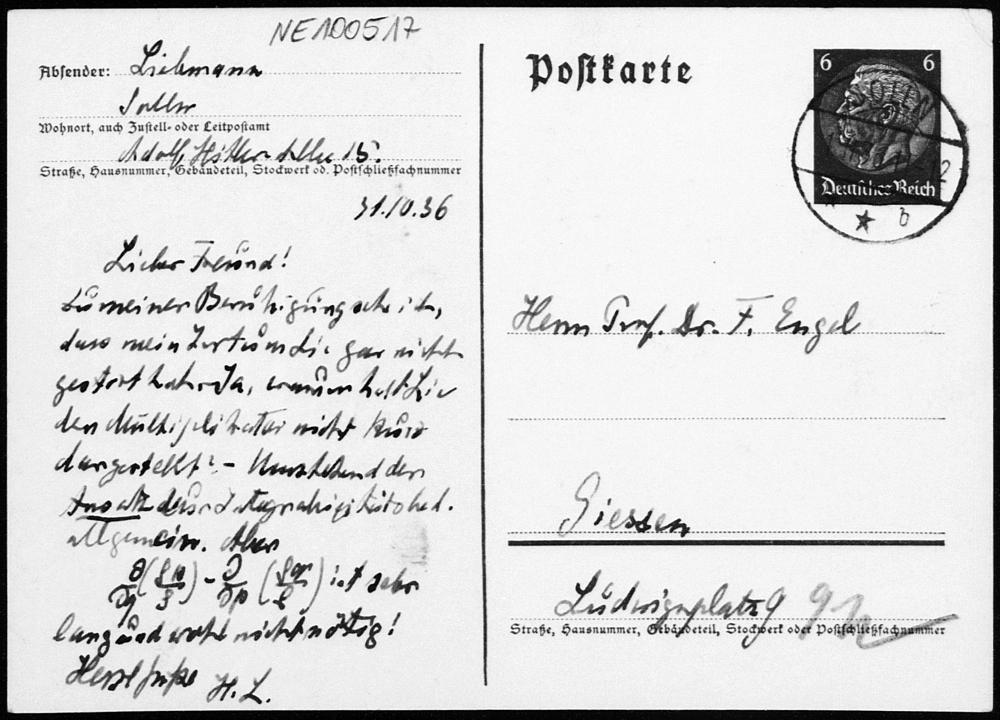 NE100517
Absender: Liebmann
Solln
Wohnort, auch Zustell- oder Leitpostamt
Adolf Hitler-Allee 15.
Straße, Hausnummer, Gebäudeteil, Stockwerk od. Postschließfachnummer
31.10.36
Lieber Freund!
Zu meiner Beruhigung seh ich,
dass mein Irrtum Sie gar nicht
gestört hat. Ja, warum hat Lie
den Multiplikator nicht kurz
dargestellt? – Umstehend der
Ansatz der Integrabilitätsbed.
allgemein. Aber
ist sehr
lang und wohl nicht nötig!
Herzl Grüße H. L.
Postkarte
6 6
Deutsches Reich
b
Herrn Prof. Dr. F. Engel
Giessen
Ludwigsplatz 9
Straße, Hausnummer, Gebäudeteil, Stockwerk oder Postschließfachnummer